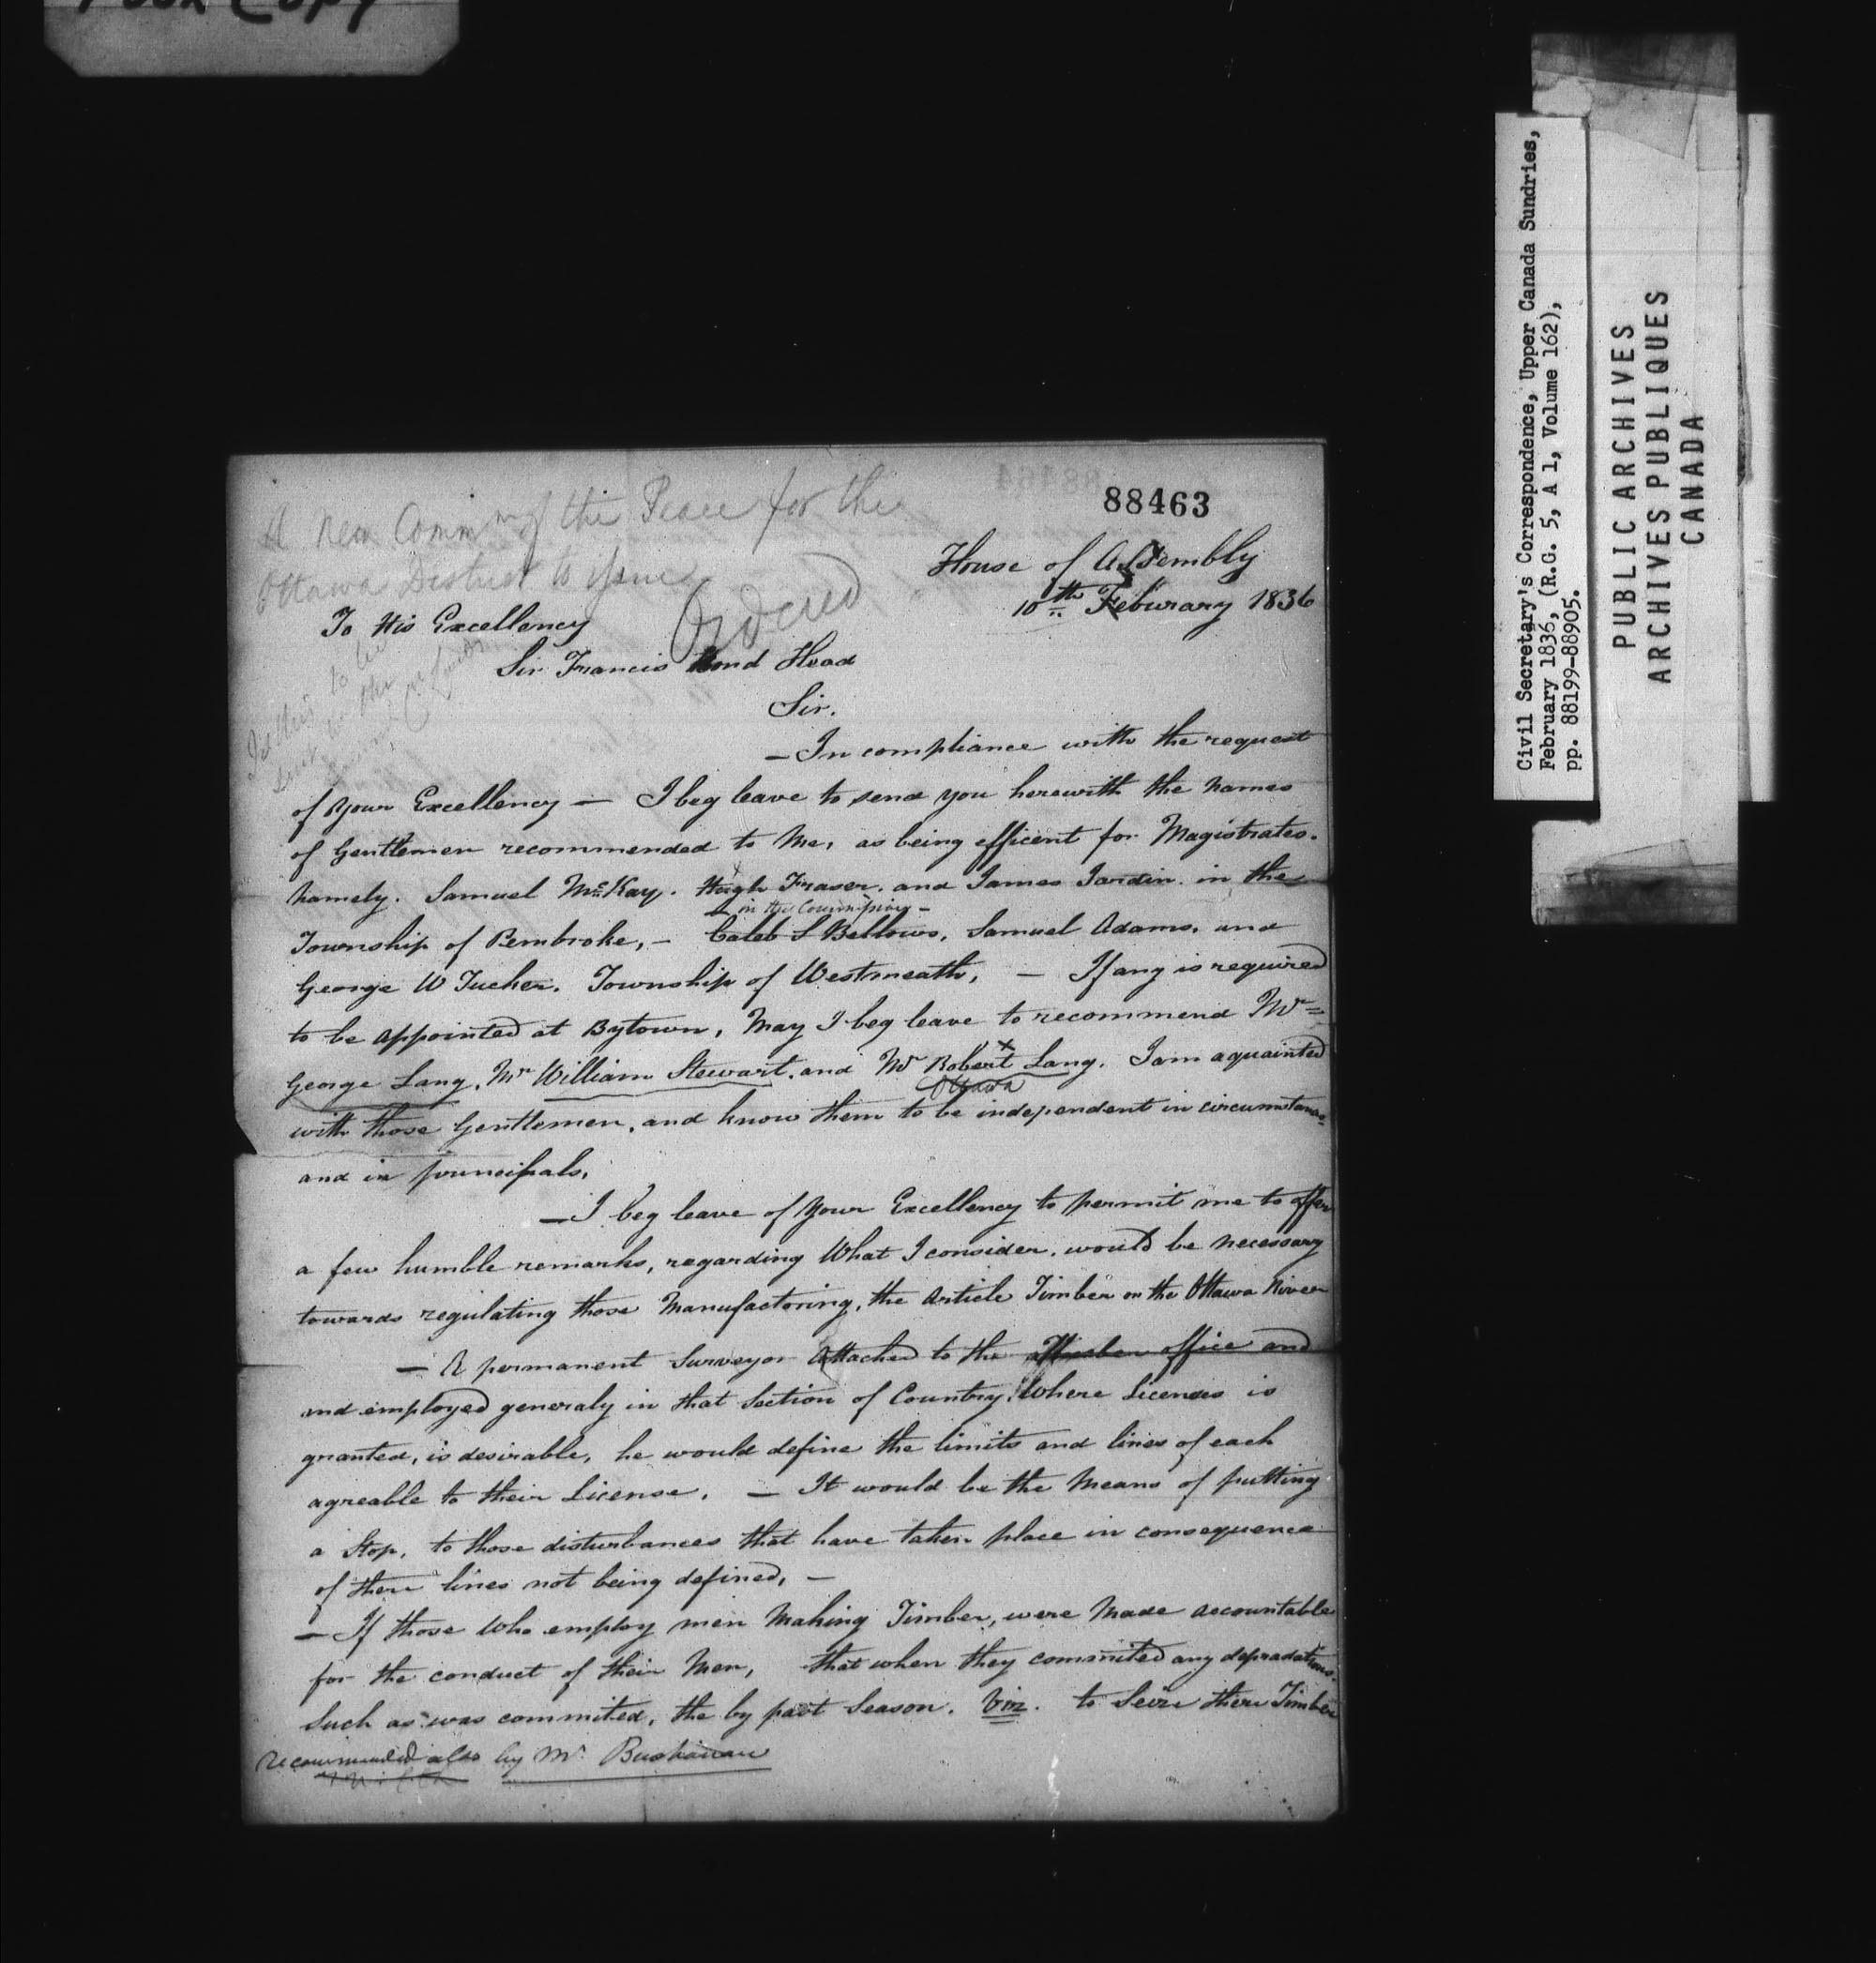 Poor Copy
88463
A New Commn of the Peace for the
Ottawa District to issue
Ordered
House of Assembly
10th Feburary 1836
To His Excellency
Sir Francis Bond Head
Sir.
— In compliance with the request
of Your Excellency — I beg leave to send you herewith the names
of Gentlemen recommended to Me, as being efficent for Magistrates.
namely. Samuel McKay. Hugh Fraser. and James Jardin. in the
— in the Commission —
Township of Pembroke, — Caleb S Bellows, Samuel Adams, and
George W Tucker. Township of Westmeath, — If any is required
to be appointed at Bytown, May I beg leave to recommend Mr
George Lang, Mr William Stewart, and Mr Robert Lang. I am aquainted
Ottawa
with those Gentlemen, and know them to be independent in circumstances
and in princifals,
— I beg leave of Your Excellency to permit me to offer
a few humble remarks, regarding What I consider, would be necessary
towards regulating those Manufactoring, the Article Timber on the Ottawa River
— A permanent Surveyor Attached to the Timber office and
and employed generaly in that Section of Country, Where Licenses is
granted, is desirable, he would define the limits and lines of each
agreable to their License, — It would be the Means of putting
a Stop, to those disturbances that have taken place in consequence
of there lines not being defined, —
— If those Who employ men Making Timber, were Made accountable
for the conduct of their Men, that when they commited any depradations
Such as was commited, the by past Season. Viz. to Seize there Timber
recommended also by Mr Buchanan
Civil Secretary's Correspondence, Upper Canada Sundries,
February 1836, (R.G. 5, A 1, Volume 162),
pp. 88199-88905.
PUBLIC ARCHIVES
ARCHIVES PUBLIQUES
CANADA